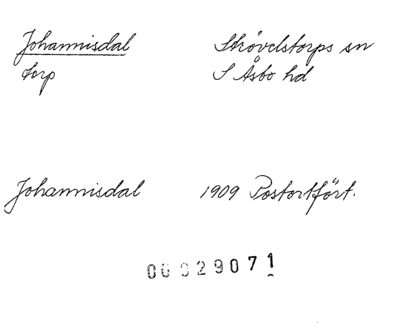 Johannisdal Strövelstorps sn
torp S Åsbo hd
Johannisdal 1909 Postortfört.
00029071